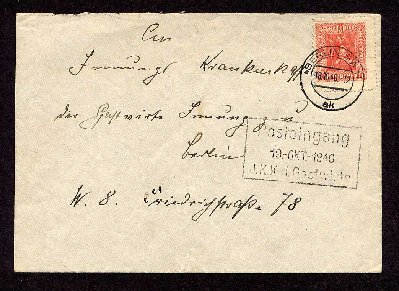 An
Innungs Krankenkasse
der Gastwirte Innung
Berlin
W. 8. Friedrichstraße 78
BERLIN
ak
Posteingang
19. OKT. 1946